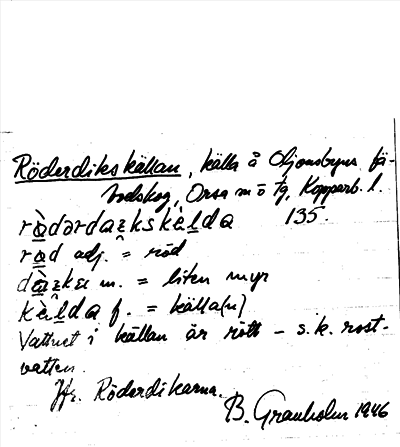 Röderdikskällan, källa å Oljonsbyns fä-
bodskog, Orsa sn o tg, Kopparb. l.
135.
adj. = röd
m. = liten myr
f. = källa(n)
Vattnet i källan är rött – s.k. rost-
vatten.
Jfr. Röderdikarna.
B. Granholm 1946